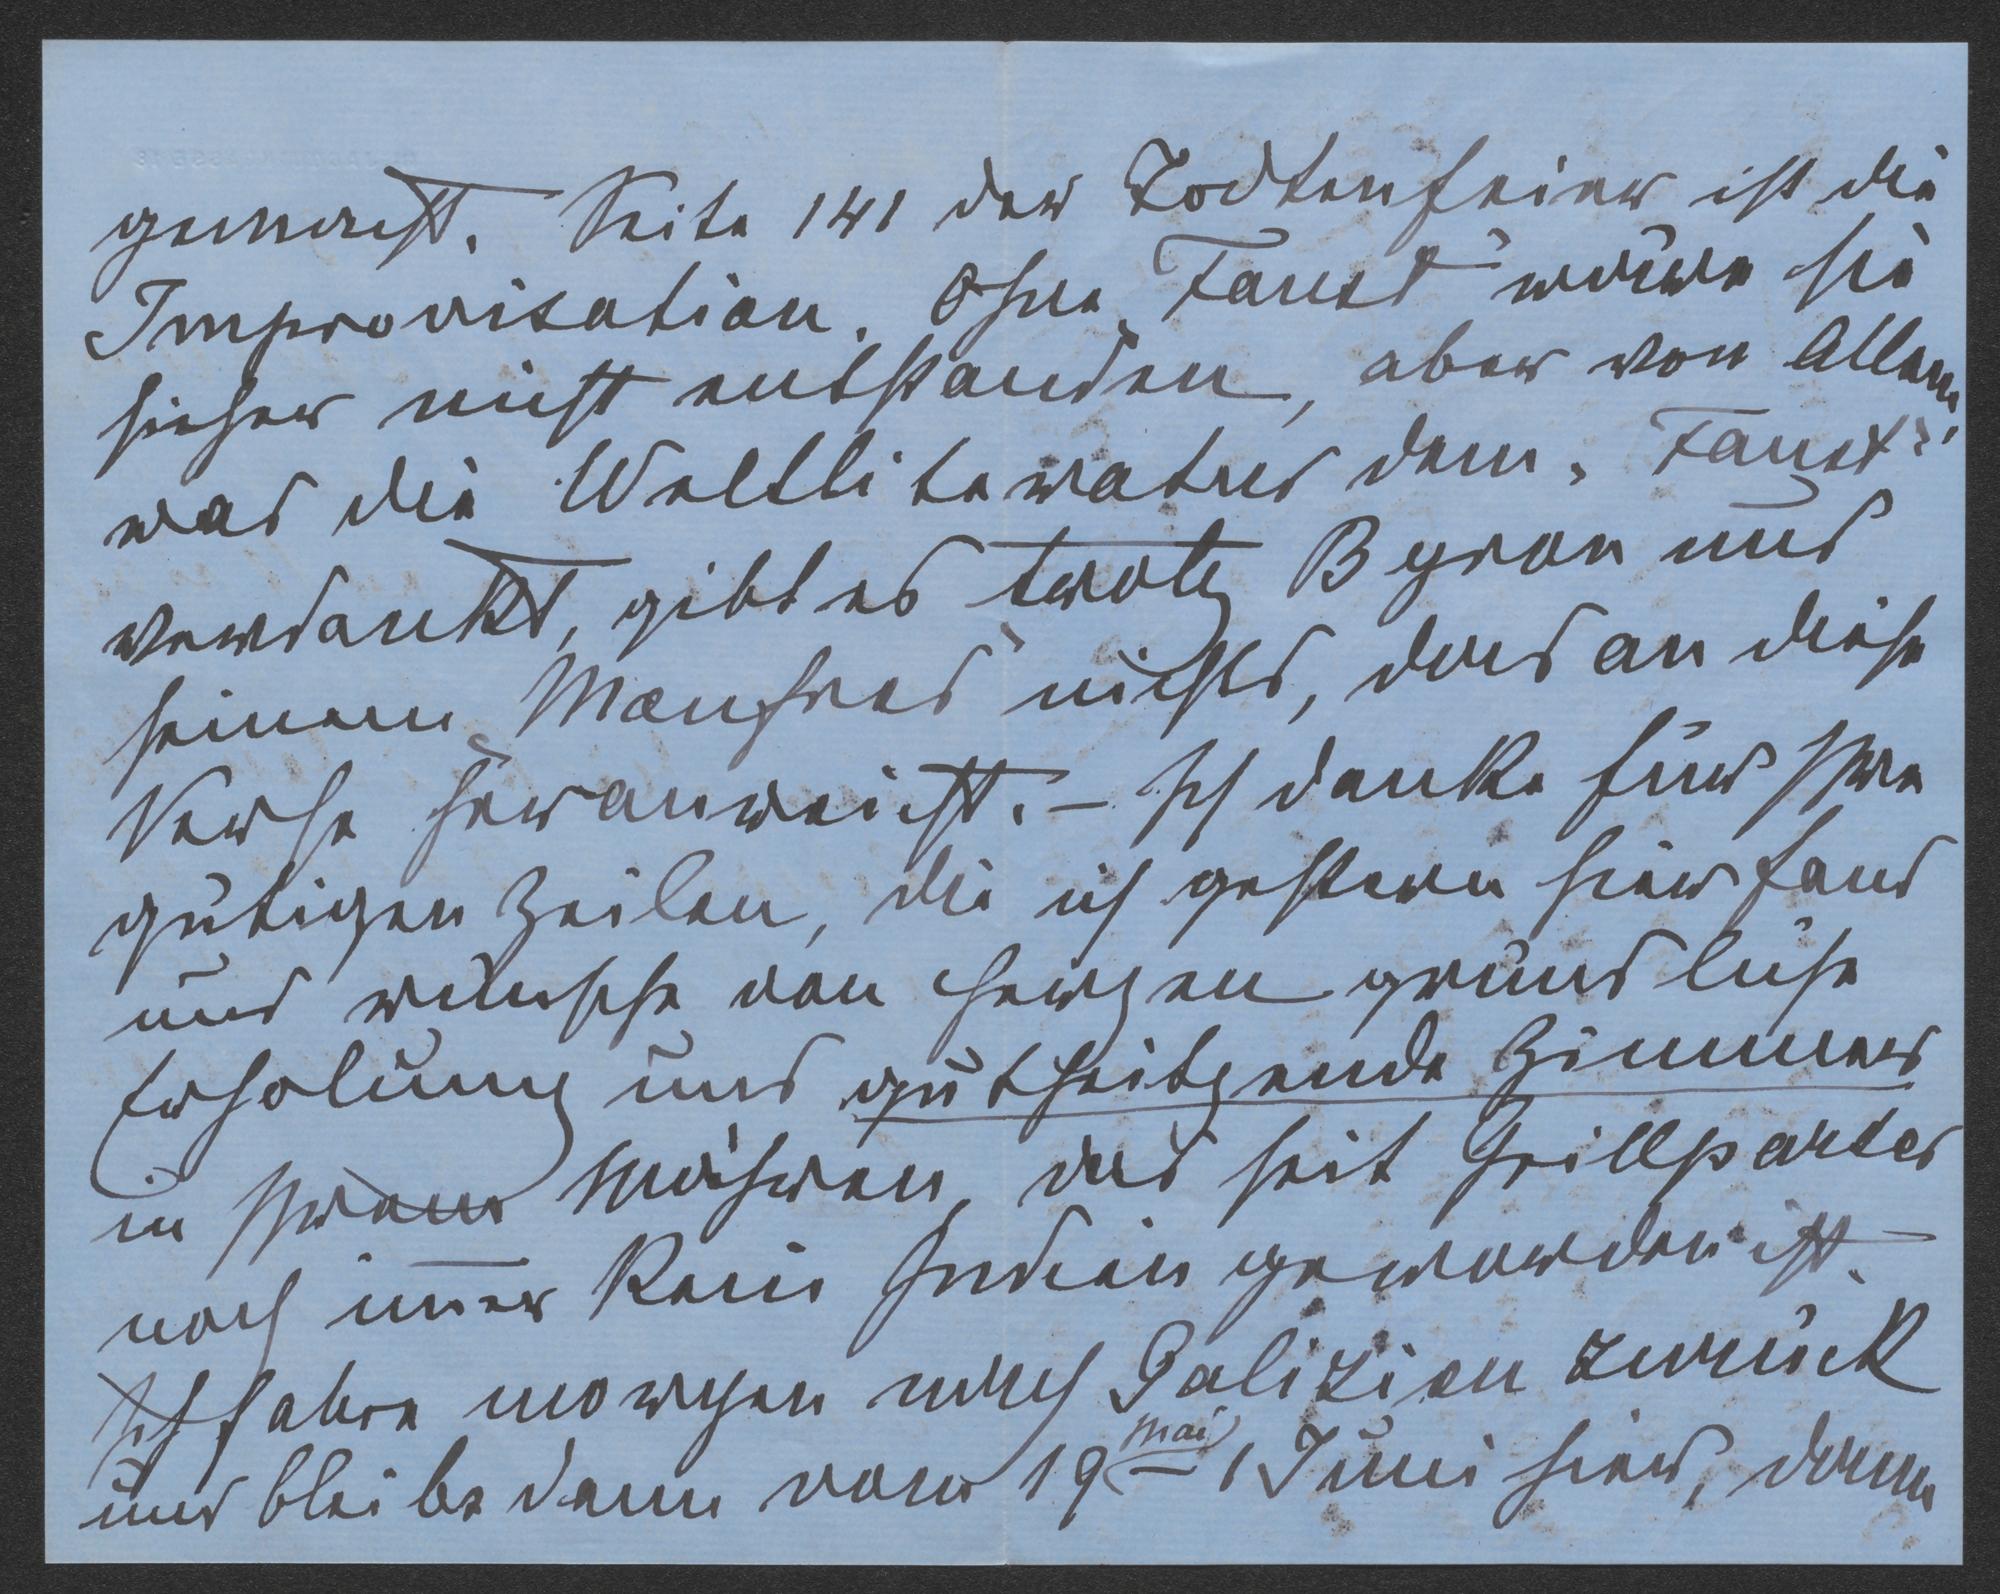 gemacht. Seite 141 der Todtenfeier ist die
Improvisation. Ohne „Faust“ wäre sie
sicher nicht entstanden, aber von Allem,
was die Weltliteratur dem „Faust“
verdankt, gibt es trotz Byron und
seinem Manfred nichts, das an diese
Verse heranreicht. – Ich danke für Ihre
gütigen Zeilen, die ich gestern hier fand
und wünsche von Herzen gründliche
Erholung und gutheitzende Zimmer
in Ihrem Mähren, das seit Grillparzer
noch im̄er kein Indien geworden ist.
Ich fahre morgen nach Galizien zurück
und bleibe dann vom 19 Mai – 1 Juni hier, dann